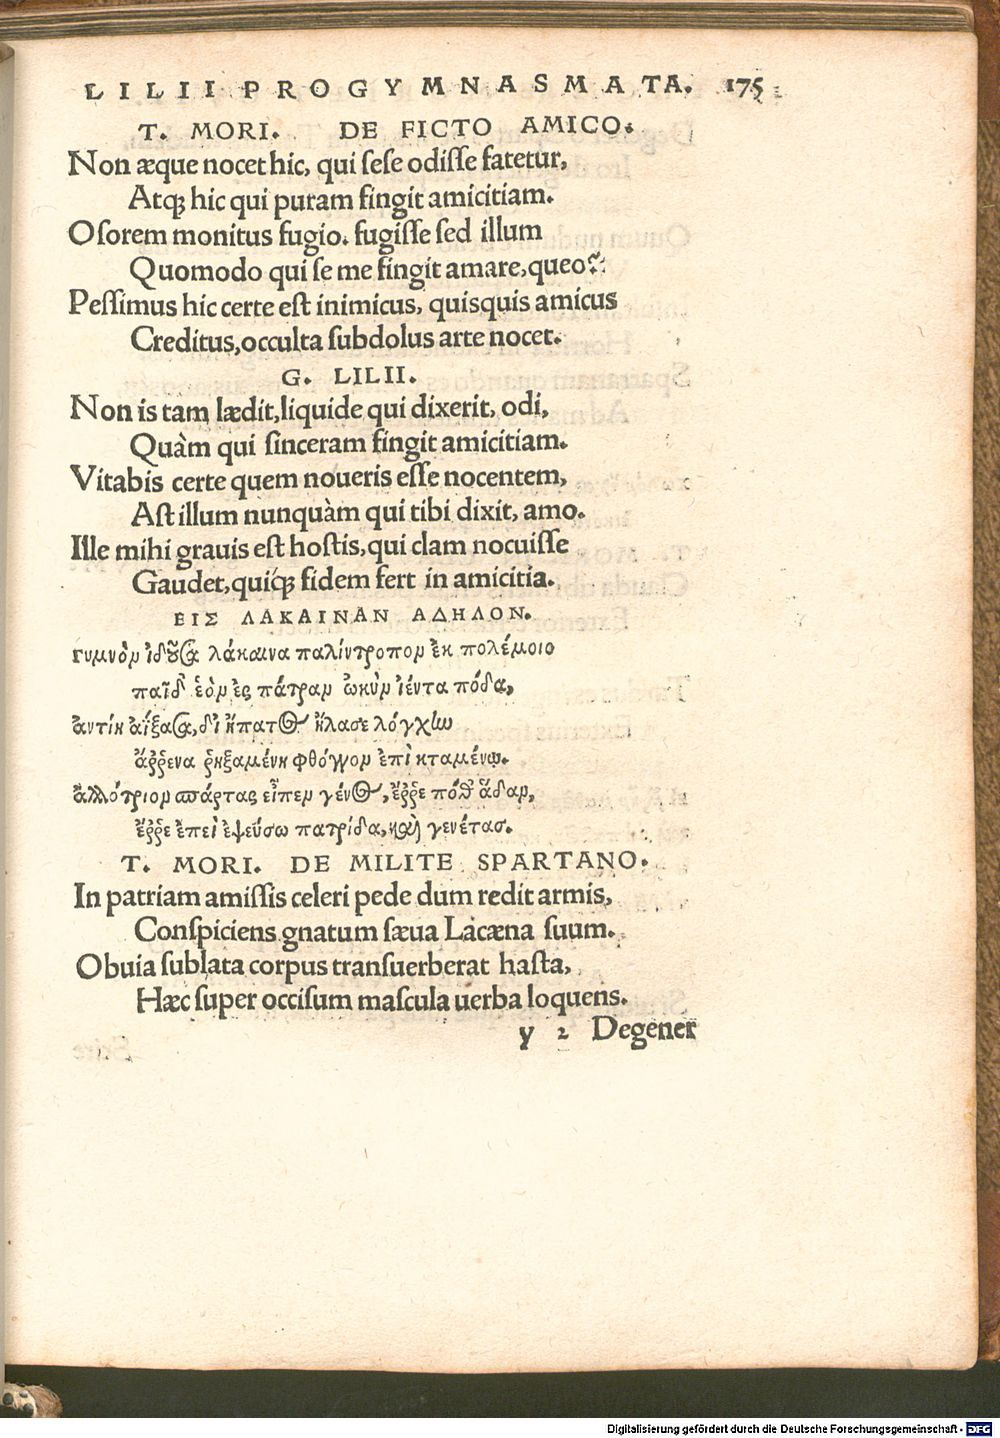 LILII PROGYMNASMATA. 175
T. MORI. DE FICTO AMICO.
Non æque nocet hic, qui ſeſe odiſſe fatetur,
Atqꝫ hic qui puram fingit amicitiam.
Oſorem monitus fugio. fugiſſe ſed illum
Quomodo qui ſe me fingit amare, queo?
Peſſimus hic certe eſt inimicus, quisquis amicus
Creditus, occulta ſubdolus arte nocet.
G. LILII.
Non is tam lædit, liquide qui dixerit, odi,
Quàm qui ſinceram fingit amicitiam.
Vitabis certe quem noueris eſſe nocentem,
Aſt illum nunquàm qui tibi dixit, amo.
Ille mihi grauis eſt hoſtis, qui clam nocuiſſe
Gaudet, quiqꝫ fidem fert in amicitia.
ΕΙΣ ΛΑΚΑΙΝΑΝ ΑΔΗΛΟΝ.
γυμνὸν ἰδοῦσα λάκαινα παλίντροπον ἐκ πολέμοιο
παῖδ' ἑὸν ἐς πάτραν ὠκὺν ἱέντα πόδα,
ἀντίκ ἀΐξασα, δι ἥπατος ἤλασε λόγχω
ἄῤῥενα ῥηξαμένη φθόγγον ἐπὶ κταμένῳ.
ἀλλότριον σπάρτας εἶπεν γένος, ἔῤῥε ποθ' ἅδαν,
ἔῤῥε ἐπεὶ ἐψεύσω πατρίδα, καὶ γενέτασ.
T. MORI. DE MILITE SPARTANO.
In patriam amiſſis celeri pede dum redit armis,
Conſpiciens gnatum ſæua Lacæna ſuum.
Obuia ſublata corpus tranſuerberat haſta,
Hæc ſuper occiſum maſcula uerba loquens.
y 2 Degener
Digitalisierung gefördert durch die Deutsche Forschungsgemeinschaft - DFG